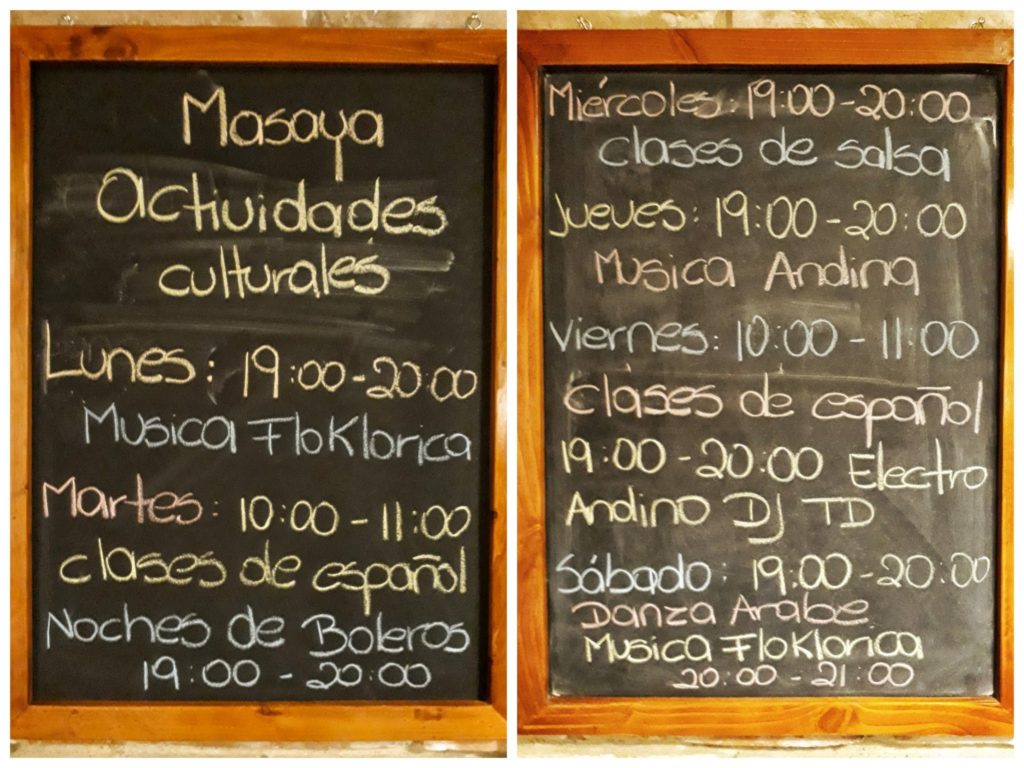 Masaya
Actividades
culturales
Lunes: 19:00-20:00
Musica FloKlorica
Martes: 10:00-11:00
clases de español
Noches de Boleros
19:00 - 20:00
Miércoles: 19:00-20:00
clases de salsa
Jueves: 19:00-20:00
Musica Andina
Viernes: 10:00-11:00
clases de español
19:00-20:00 Electro
Andino DJ TD
Sábado: 19:00-20:00
Danza Arabe
Musica FloKlorica
20:00 - 21:00